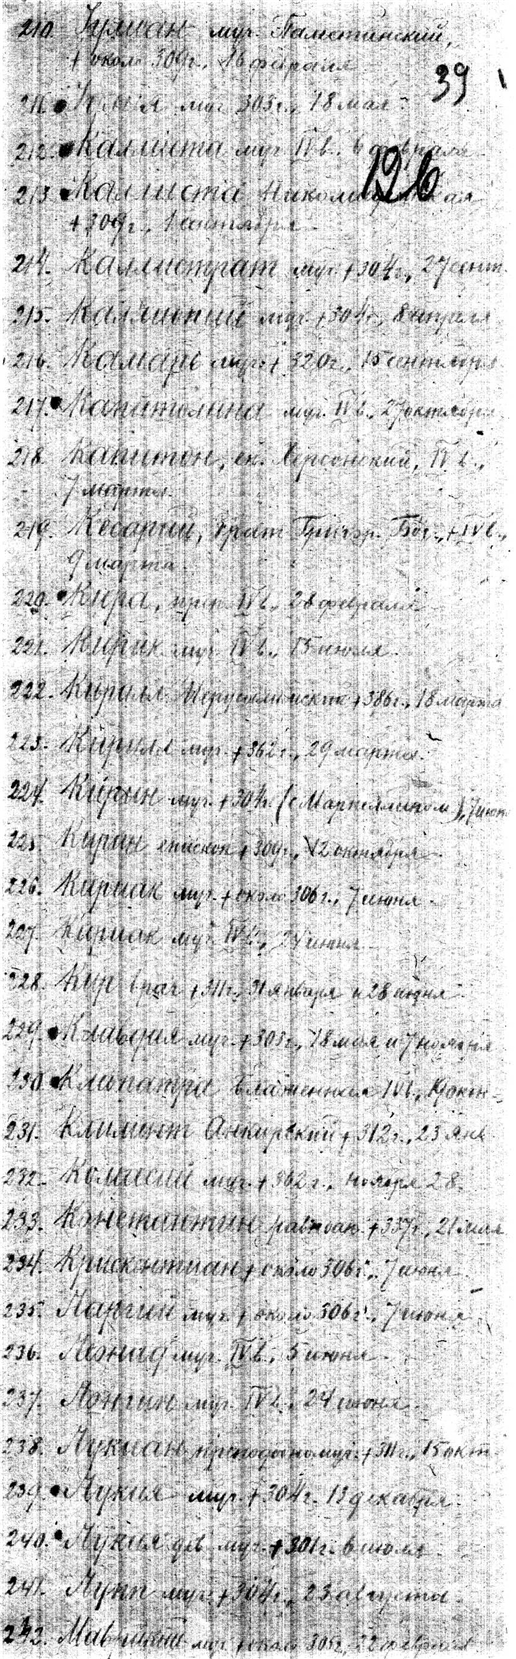 210. Иулиан муч. Палестинский,
+ около 309г., 16 февраля
39
211. муч. 303г., 18 мая.
212. Каллиста муч. IV в. 6 февраля
126
213. Каллиста Никомидийская
+ 309г., 1 сентября
214. Каллистрат муч. + 304г., 27 сент.
215. Каллиопий муч. + 304г., апреля
216. муч. + 320г., 15 сентября
217. Капитолина муч. IV в., 27 октября
218. Капитон, еп. Херсонский, IV в.,
7 марта.
219. Кесарий, брат Григор. Бог., + IV в.,
9 марта.
220. Кира, преп. IV в., 28 февраля
221. Кирик муч. IV в., 15 июля.
222. Кирилл Иерусалимский + 386г., 18 марта
223. Кирилл муч. + 362г., 29 марта.
224. Кирин муч. + 304г. (с Маркеллином), 7 июн
225. епископ + 309г., 12 октября
226. Кириак муч. + около 306г., 7 июня.
227. Кириак муч. IV в., 24 июня
228. Кир врач + 311г., 31 января и 28 июня
229. Клавдия муч. + 303г., 18 мая и 7 ноября
230. Клеопатра блаженная IV в., 19 окт.
231. Климент Анкирский + 312г., 23 янв
232. муч. + 362г., ноября 28.
233. Константин равноап. + 337г., 21 мая
234. Крискентиан + около 306г., 7 июня
235. Ларгий муч. + около 306г., 7 июня
236. Леонид муч. IV в., 5 июня
237. Лонгин муч. IV в., 24 июня.
238. Лукиан преподобномуч. + 311г., 15 окт.
239. Лукия муч. + 304г. 13 декабря.
240. Лукия дв. муч. + 301г. 6 июля
241. Лупп муч. + 304г., 23 августа.
242. Маврикий муч. около 305г., 22 февраля